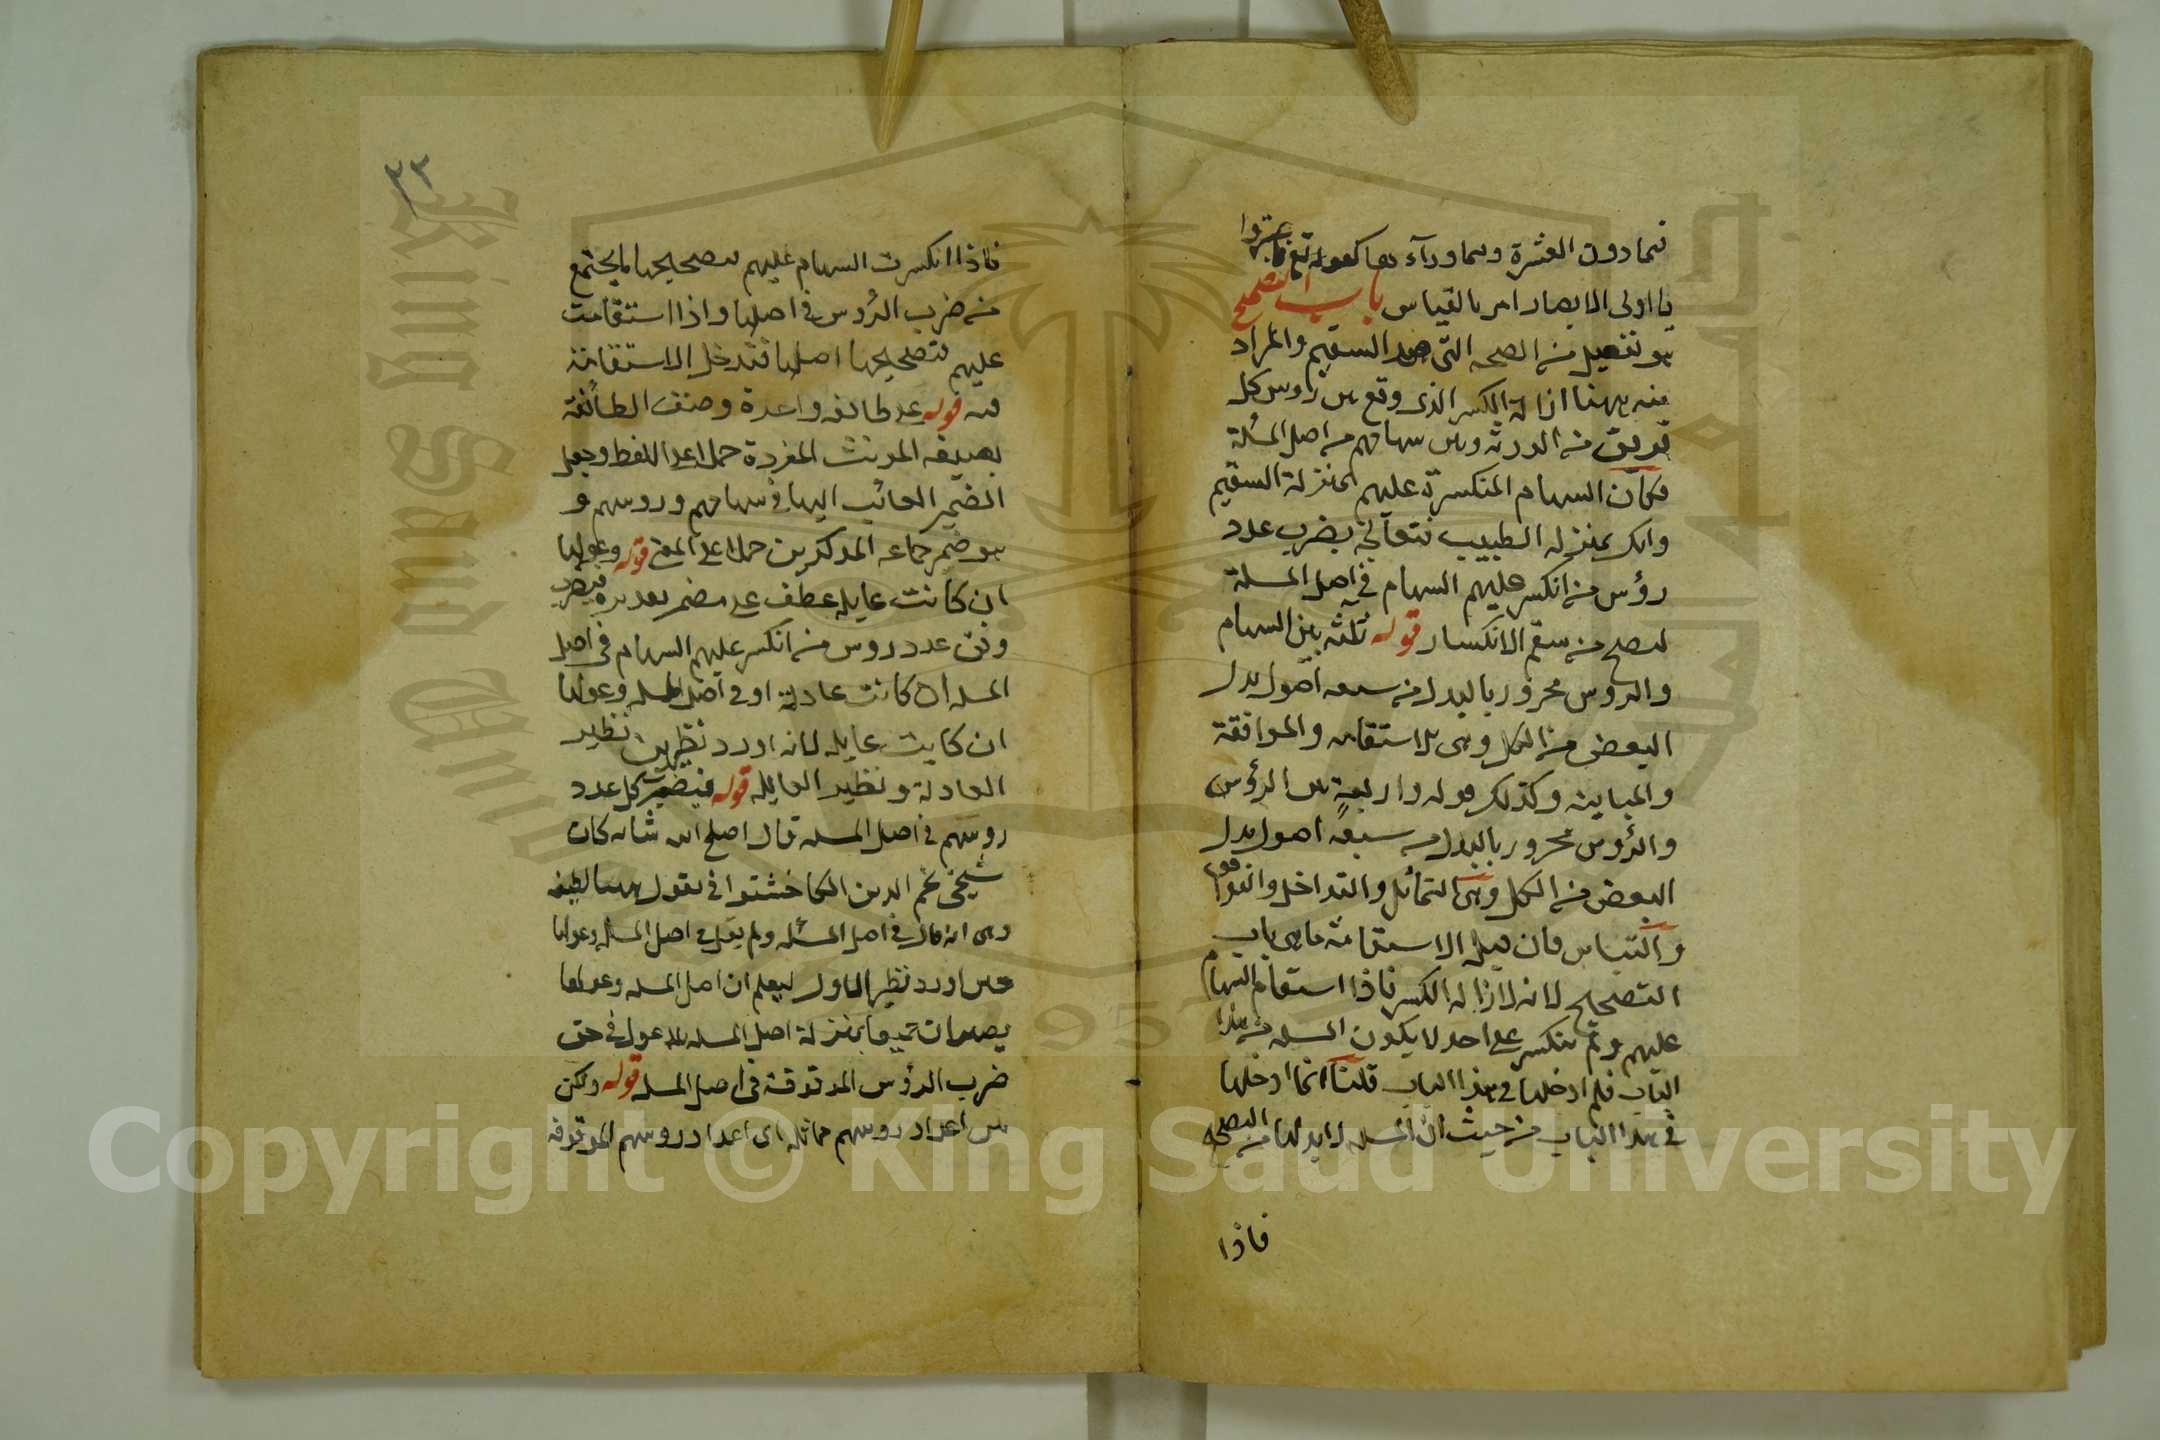 فيما دون العشرة وفيما وراء ها كقوله تع فاعتبروا
يا اولى الابصار امر بالقياس باب التصحيح
هو تفعيل من الصحه التى ضد السقيم والمراد
منه ههنا ازالة الكسر الذى وقع بين رؤس كل
فريق من الورثه وبين سهامهم من اصل المسئلة
فكان السهام المنكسرة عليهم بمنزلة السقيم
وانك بمنزله الطبيب فتعالجه بضرب عدد
رؤس من انكسر عليهم السهام في اصل المسلة
ليصح من سقم الانكسار قوله ثلثه بين السهام
والروس مجرور بالبدل من سبعه اصول بدل
البعض من الكل وهى الاستقامه والموافقة
والمباينه وكذلك قوله واربعة بين الرؤس
والرؤس مجرور بالبدل من سبعه اصول بدل
البعض من الكل وهى التماثل والتداخل والتوافق
والتباين فان قيل الاستقامة ما هى باب
التصحيح لانه لازاله الكسر فاذا استقام السهام
عليهم ولم ينكسر على احد لا يكون المسله من هذا
الباب فلم ادخلها في هذا الباب قلنا انما ادخلها
في هذا الباب من حيث ان المسله لا بد لها من التصحيح
فاذا
٢٣
فاذا انكسرت السهام عليهم فتصحيحها بما يجتمع
من ضرب الرؤس في اصلها واذا استقامت
عليهم فتصحيحها اصلها فتدخل الاستقامة
فيه قوله على طائفه واحدة وصف الطائفة
بصيغه المونث المفردة حملا على اللفظ وجعل
الضمير العائب اليها في سهامهم وروسهم و
هو ضمير جماعه المذكرين حملا على المعنى قوله وعولها
ان كانت عايله عطف على مضمر تقديره فيضرب
وفق عدد روس من انكسر عليهم السهام في اصل
المسله ان كانت عادلة او في اصل المسله وعولها
ان كانت عايله لانه اورد نظيرين نظير
العادلة ونظير العايله قوله فيضرب كل عدد
روسهم في اصل المسله قال اصلح الله شانه كان
شيخى نجم الدين الكاخشتوانى يقول ههنا لطيفه
وهى انه قال في اصل المسئله ولم يقل في اصل المسله وعولها
حين اورد نظير العاول ليعلم ان اصل المسله وعولها
يصيران جميعا بمنزلة اصل المسله بلا عول في حق
ضرب الرؤس الموقوفة في اصل المسله قوله ولكن
بين اعداد روسهم مماثله اى اعداد روسهم الموقوفه